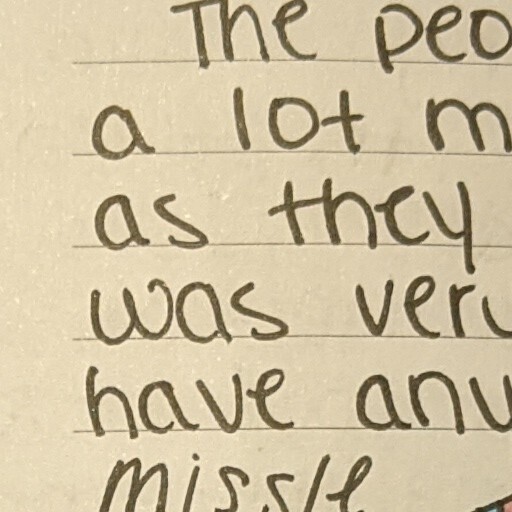 The peo
a lot m
as they
was very
have any
missle